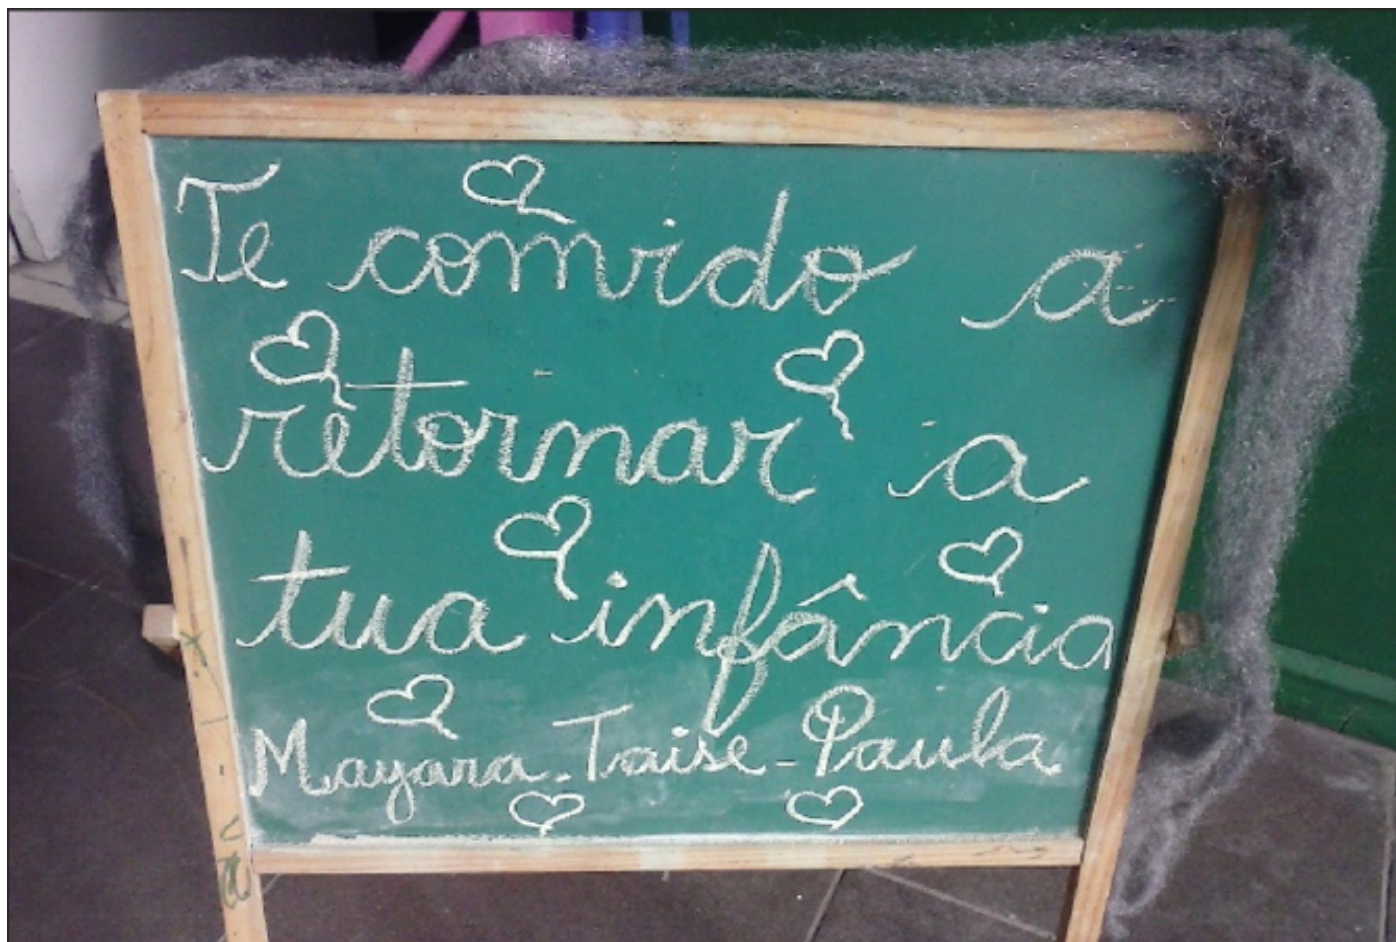 Te comvido a
retornar a
tua infância
Mayara - Taise - Paula